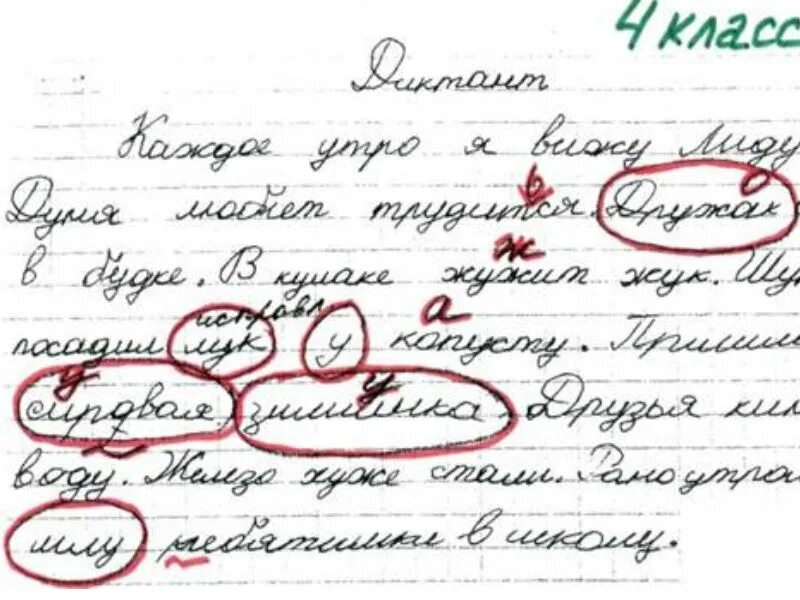 4 класс
Диктант
Каждое утро я вижу Лиду
Дуня любит трудится. Дружак
в будке. В кулаке жужит жук.
посадил лук у копусту.
сирдвая зимиинка. Друзья
воду. Железо хуже стали. Рано утром
шлу ребятишки в школу.